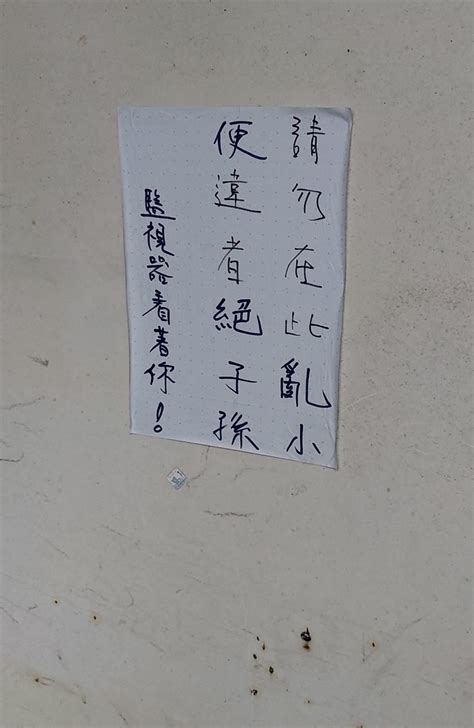 請勿在此亂小
便違者絕子孫
監視器看著你！